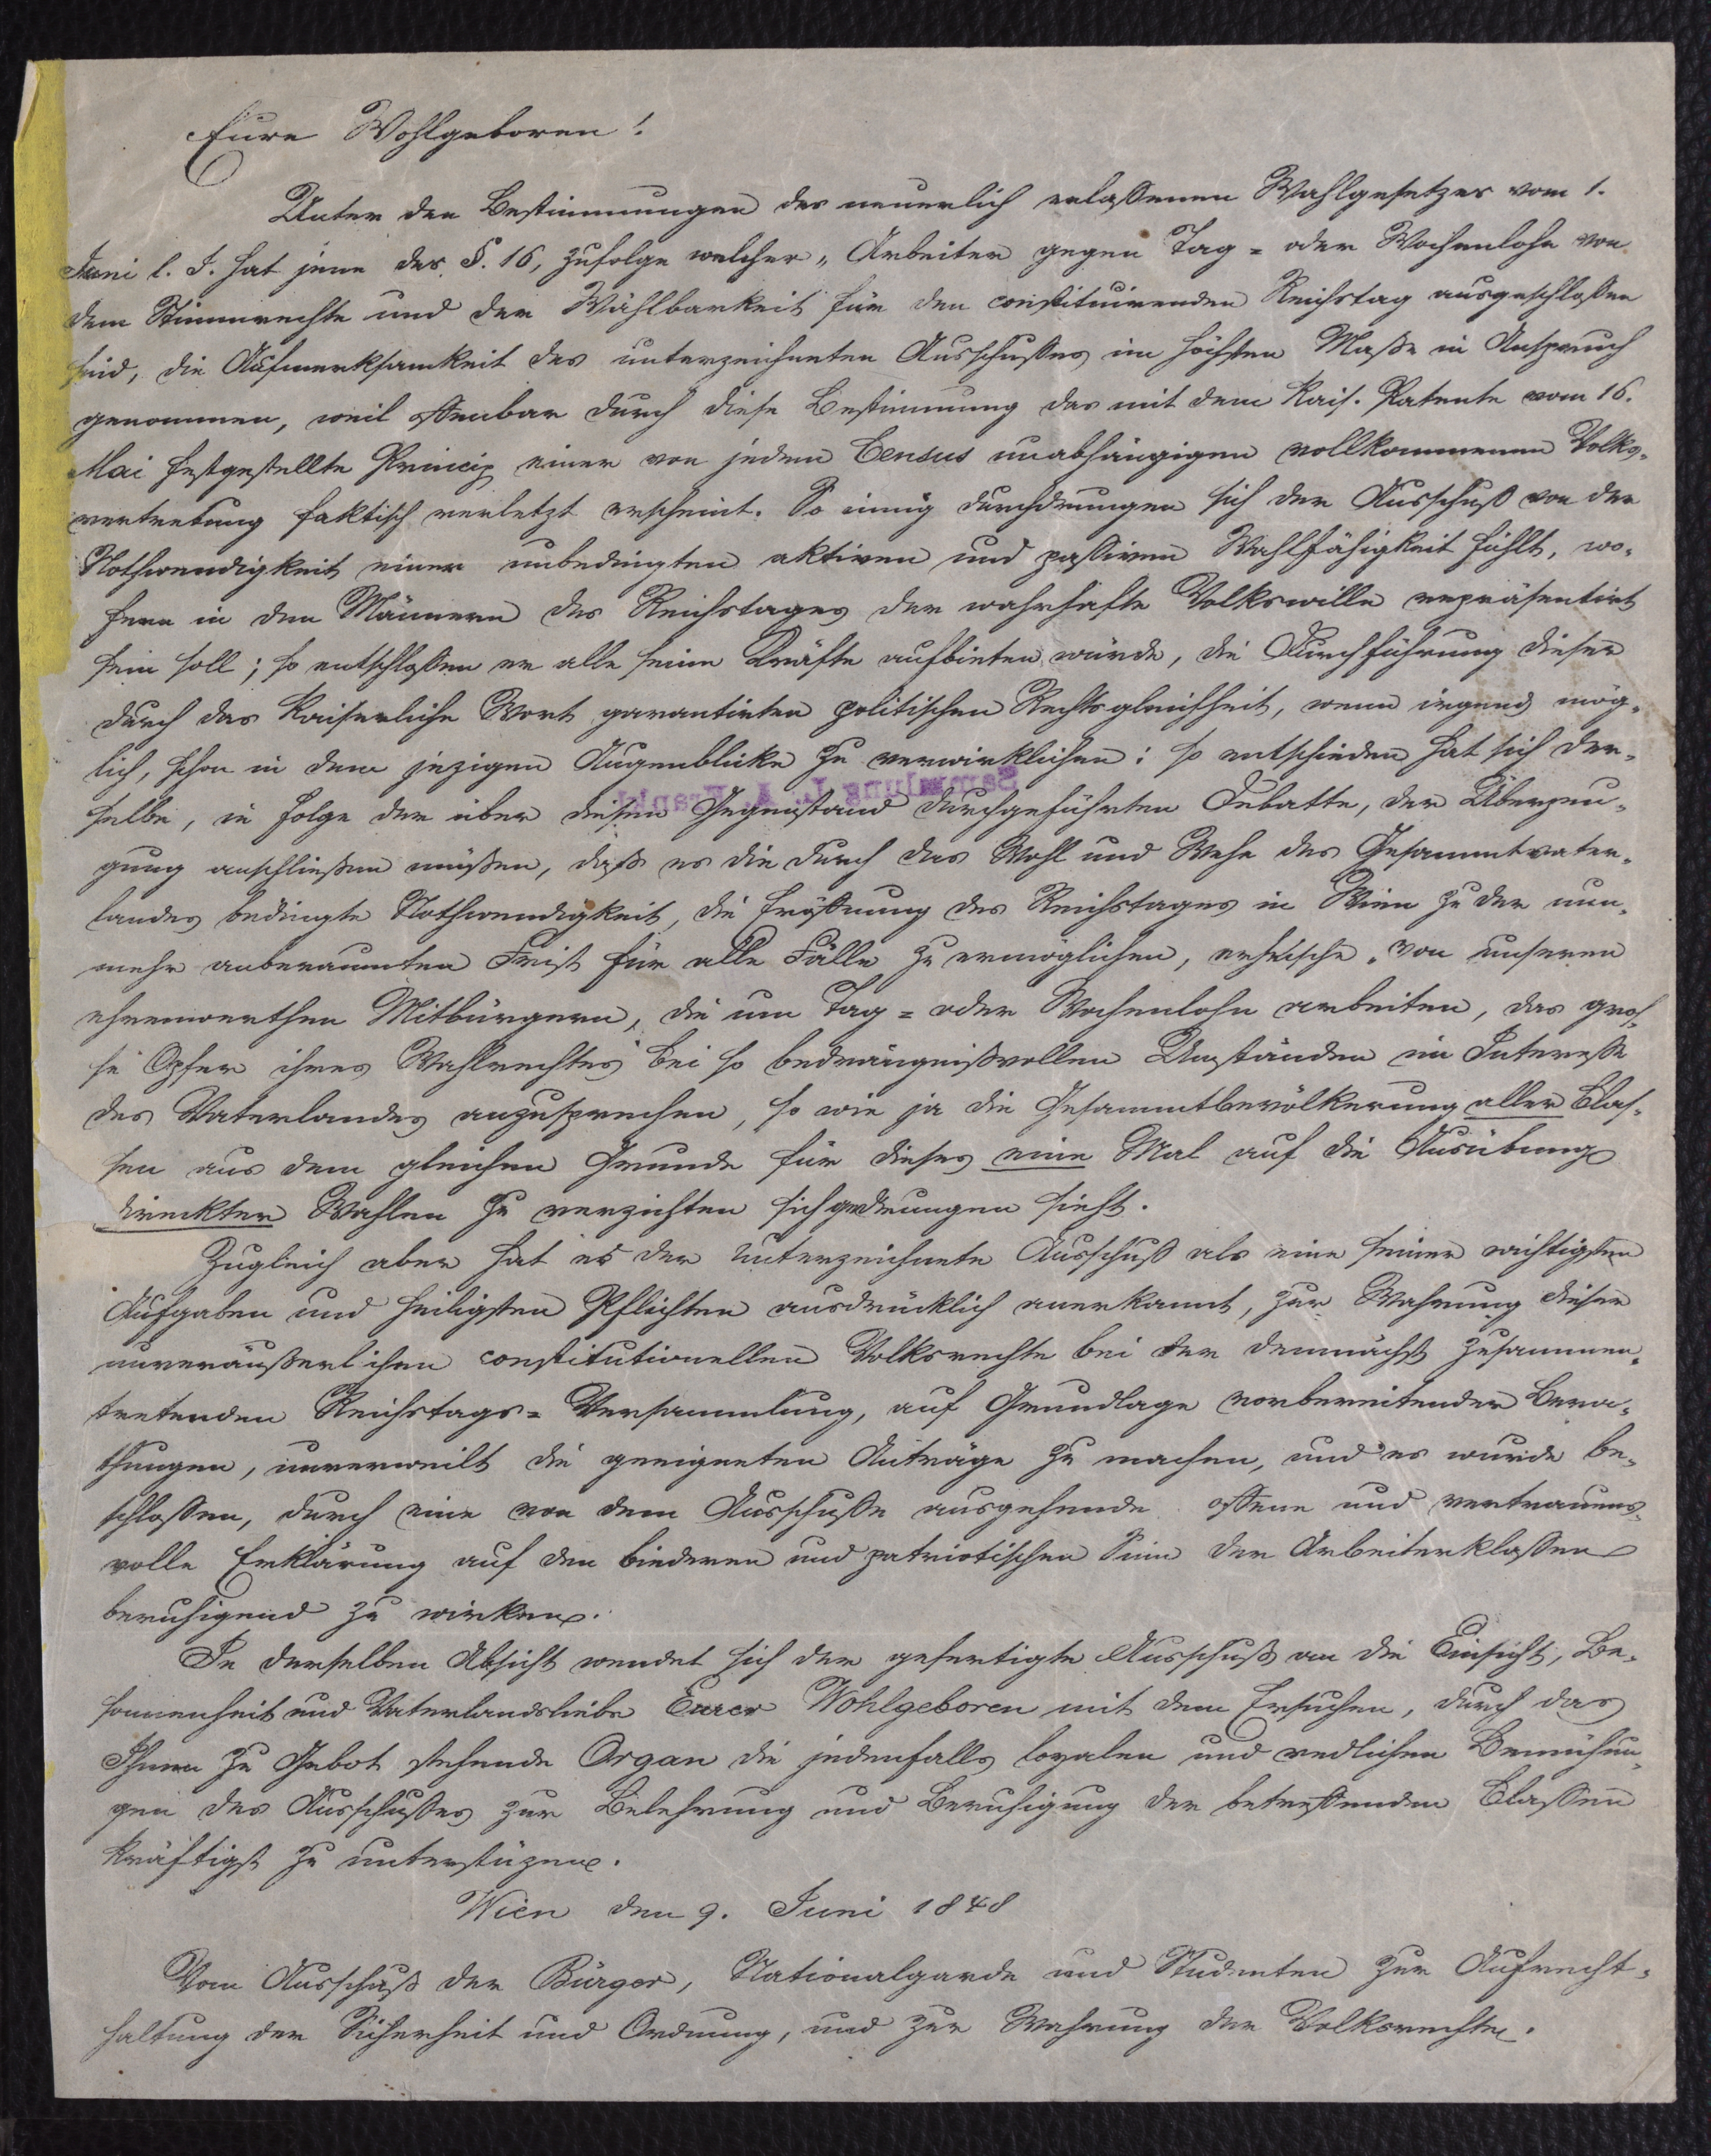 Eure Wohlgeboren!
Unter den Bestimmungen des neuerlich erlassenen Wahlgesetzes vom 1.
Juni l. J. hat jene des §. 16, zufolge welcher „Arbeiter gegen Tag= oder Wochenlohn von
dem Stimmrechte und der Wählbarkeit für den constituirenden Reichstag ausgeschlossen
sind, die Aufmerksamkeit des unterzeichneten Ausschusses im höchsten Maße in Anspruch
genommen, weil offenbar durch diese Bestimmung das mit dem Kais. Patente vom 16.
Mai festgestellte Princip einer von jedem Census unabhängigen vollkommenen Volks-
vertretung faktisch verletzt erscheint. So innig durchdrungen sich der Ausschuß von der
Nothwendigkeit einer unbedingten aktiven und passiven Wahlfähigkeit fühlt, wo-
fern in den Männern des Reichstages der wahrhafte Volkswille repräsentirt
sein soll; so entschlossen er alle seine Kräfte aufbieten würde, die Durchführung dieser
durch das Kaiserliche Wort garantirten politischen Rechtsgleichheit, wenn irgend mög-
lich, schon in dem jezigen Augenblicke zu verwirklichen: so entschieden hat sich der-
selbe, in Folge der über diesen Gegenstand durchgeführten Debatte, der Überzeu-
gung anschließen müßen, daß es die durch das Wohl und Wehe des Gesammtvater-
landes bedingte Nothwendigkeit, die Eröffnung des Reichstages in Wien zu der nun-
mehr anberaumten Frist für alle Fälle zu ermöglichen, erheische „von unseren
ehrenwerthen Mitbürgern, die um Tag= oder Wochenlohn arbeiten, das gros-
se Opfer ihres Wahlrechtes" bei so bedrängnißvollen Umständen im Interesse
des Vaterlandes anzusprechen, so wie ja die Gesammtbevölkerung aller Clas-
sen aus dem gleichen Grunde für dieses eine Mal auf die Ausübung
direckter Wahlen zu verzichten sich gedrungen sieht.
Zugleich aber hat es der unterzeichnete Ausschuß als eine seiner wichtigsten
Aufgaben und heiligsten Pflichten ausdrücklich anerkannt, zur Wahrung dieser
unveräußerlichen constitutionellen Volksrechte bei der demnächst zusammen-
tretenden Reichstags=Versammlung, auf Grundlage vorbereitender Bera-
thungen, unverweilt die geeigneten Anträge zu machen, und es wurde be-
schlossen, durch eine von dem Ausschusse ausgehende offene und vertrauens-
volle Erklärung auf den biederen und patriotischen Sinn der Arbeiterklassen
beruhigend zu wirken.
In derselben Absicht wendet sich der gefertigte Ausschuß an die Einsicht, Be-
sonnenheit und Vaterlandsliebe Eurer Wohlgeboren mit dem Ersuchen, durch das
Ihnen zu Gebot stehende Organ die jedenfalls loyalen und redlichen Bemühun-
gen des Ausschusses zur Belehrung und Beruhigung der betreffenden Classen
kräftigst zu unterstüzen.
Wien den 9. Juni 1848
Vom Ausschuß der Bürger, Nationalgarde und Studenten zur Aufrecht-
haltung der Sicherheit und Ordnung, und zur Wahrung der Volksrechte.
Sammlung L. A. Frankl